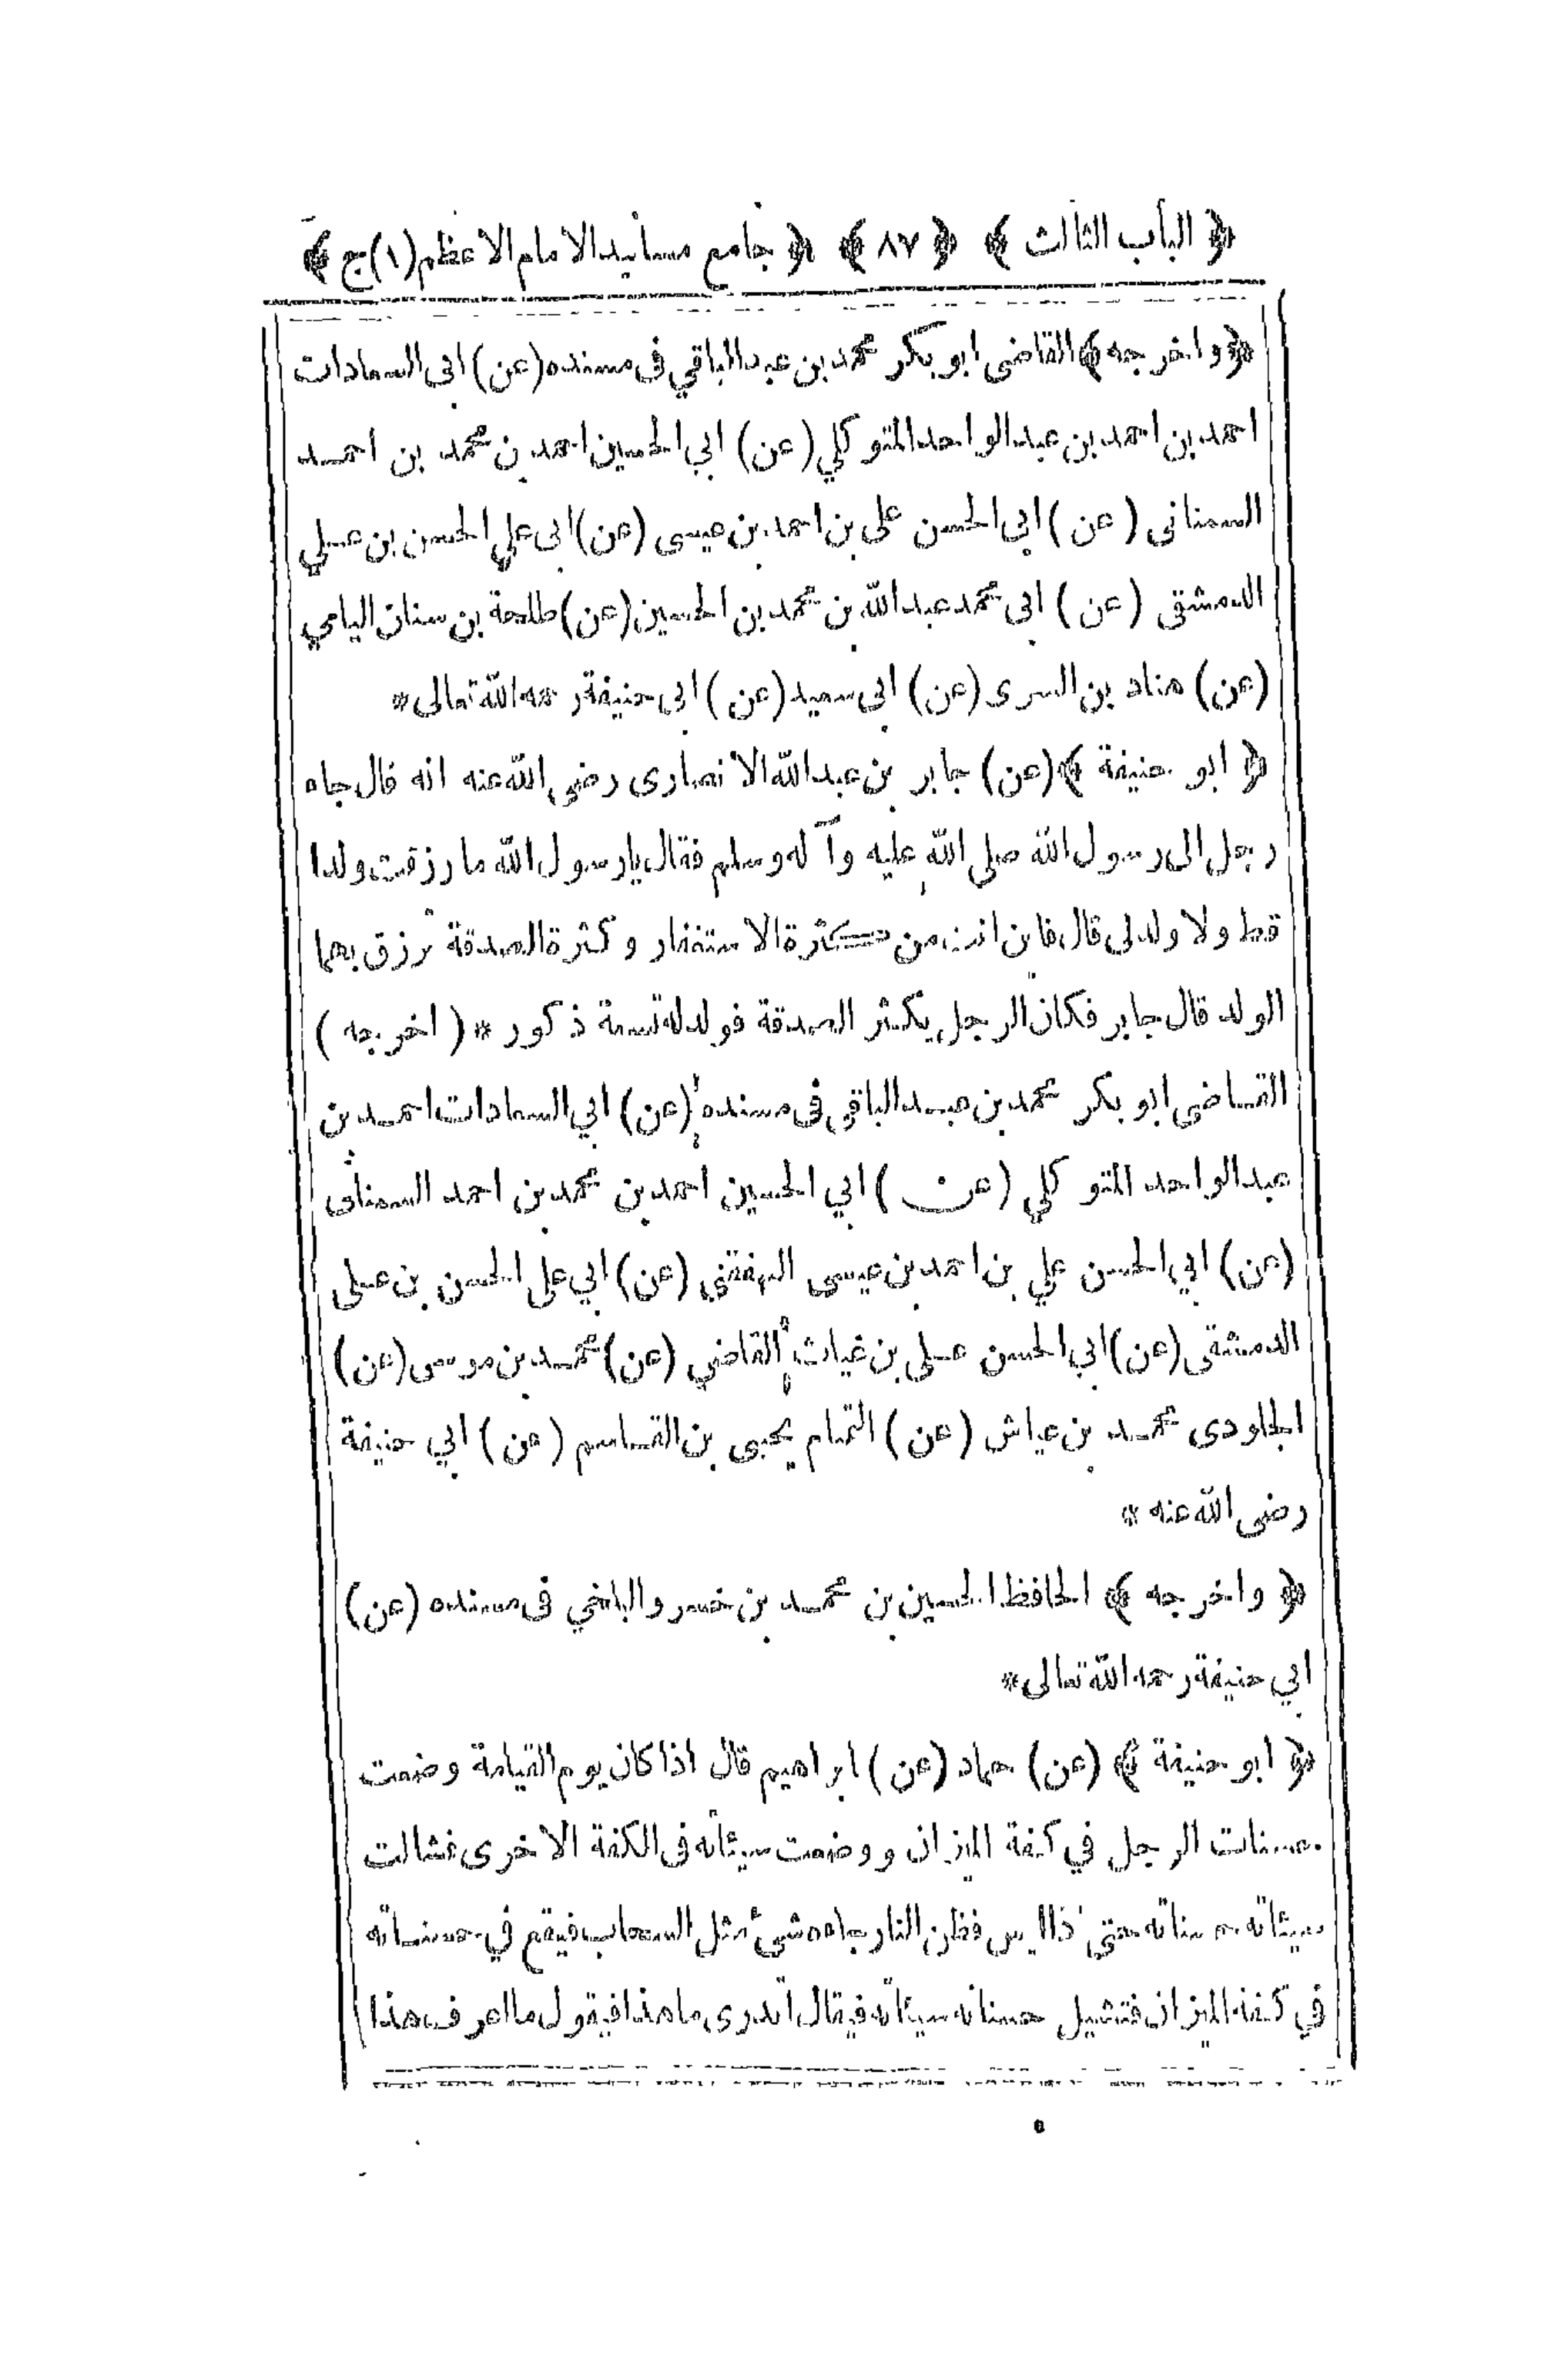 ﴿ الباب الثالث ﴾ ﴿ ٨٧ ﴾ ﴿ جامع مسانيد الامام الاعظم (١) ج ﴾
﴿ واخرجه ﴾ القاضى ابو بكر محمد بن عبد الباقي فى مسنده (عن) ابى السعادات
احمد بن احمد بن عبد الواحد المتوكلي (عن) ابي الحسين احمد بن محمد بن احمد
السمنانى (عن) ابي الحسن على بن احمد بن عيسى (عن) ابى علي الحسن بن علي
الدمشقى (عن) ابى محمد عبد الله بن محمد بن الحسين (عن) طلحة بن سنان اليامي
(عن) هناد بن السرى (عن) ابى سعيد (عن) ابى حنيفة رحمه الله تعالى *
﴿ ابو حنيفة ﴾ (عن) جابر بن عبد الله الانصارى رضي الله عنه انه قال جاء
رجل الى رسول الله صلى الله عليه وآله وسلم فقال يا رسول الله ما رزقت ولدا
قط ولا ولد لى قال فاين انت من كثرة الاستغفار وكثرة الصدقة ترزق بهما
الولد قال جابر فكان الرجل يكثر الصدقة فولد له تسعة ذكور * (اخرجه)
القاضى ابو بكر محمد بن عبد الباقي فى مسنده (عن) ابي السعادات احمد بن
عبد الواحد المتوكلي (عن) ابي الحسين احمد بن محمد بن احمد السمنانى
(عن) ابي الحسن علي بن احمد بن عيسى (عن) ابي على الحسن بن على
الدمشقى (عن) ابي الحسن على بن غياث القاضي (عن) محمد بن موسى (عن)
الجلودى محمد بن عياش (عن) التمام يحيى بن القاسم (عن) ابي حنيفة
رضى الله عنه *
﴿ واخرجه ﴾ الحافظ الحسين بن محمد بن خسرو البلخي فى مسنده (عن)
ابي حنيفة رحمه الله تعالى *
﴿ ابو حنيفة ﴾ (عن) حماد (عن) ابراهيم قال اذا كان يوم القيامة وضعت
حسنات الرجل في كفة الميزان ووضعت سيئاته فى الكفة الاخرى فشالت
سيئاته حسناته حتى اذا ايس فظن النار جاءه شئ مثل السحاب فيقع في حسناته
في كفة الميزان فتشيل حسناته سيئاته فيقال اتدرى ما هذا فيقول ما اعرف هذا